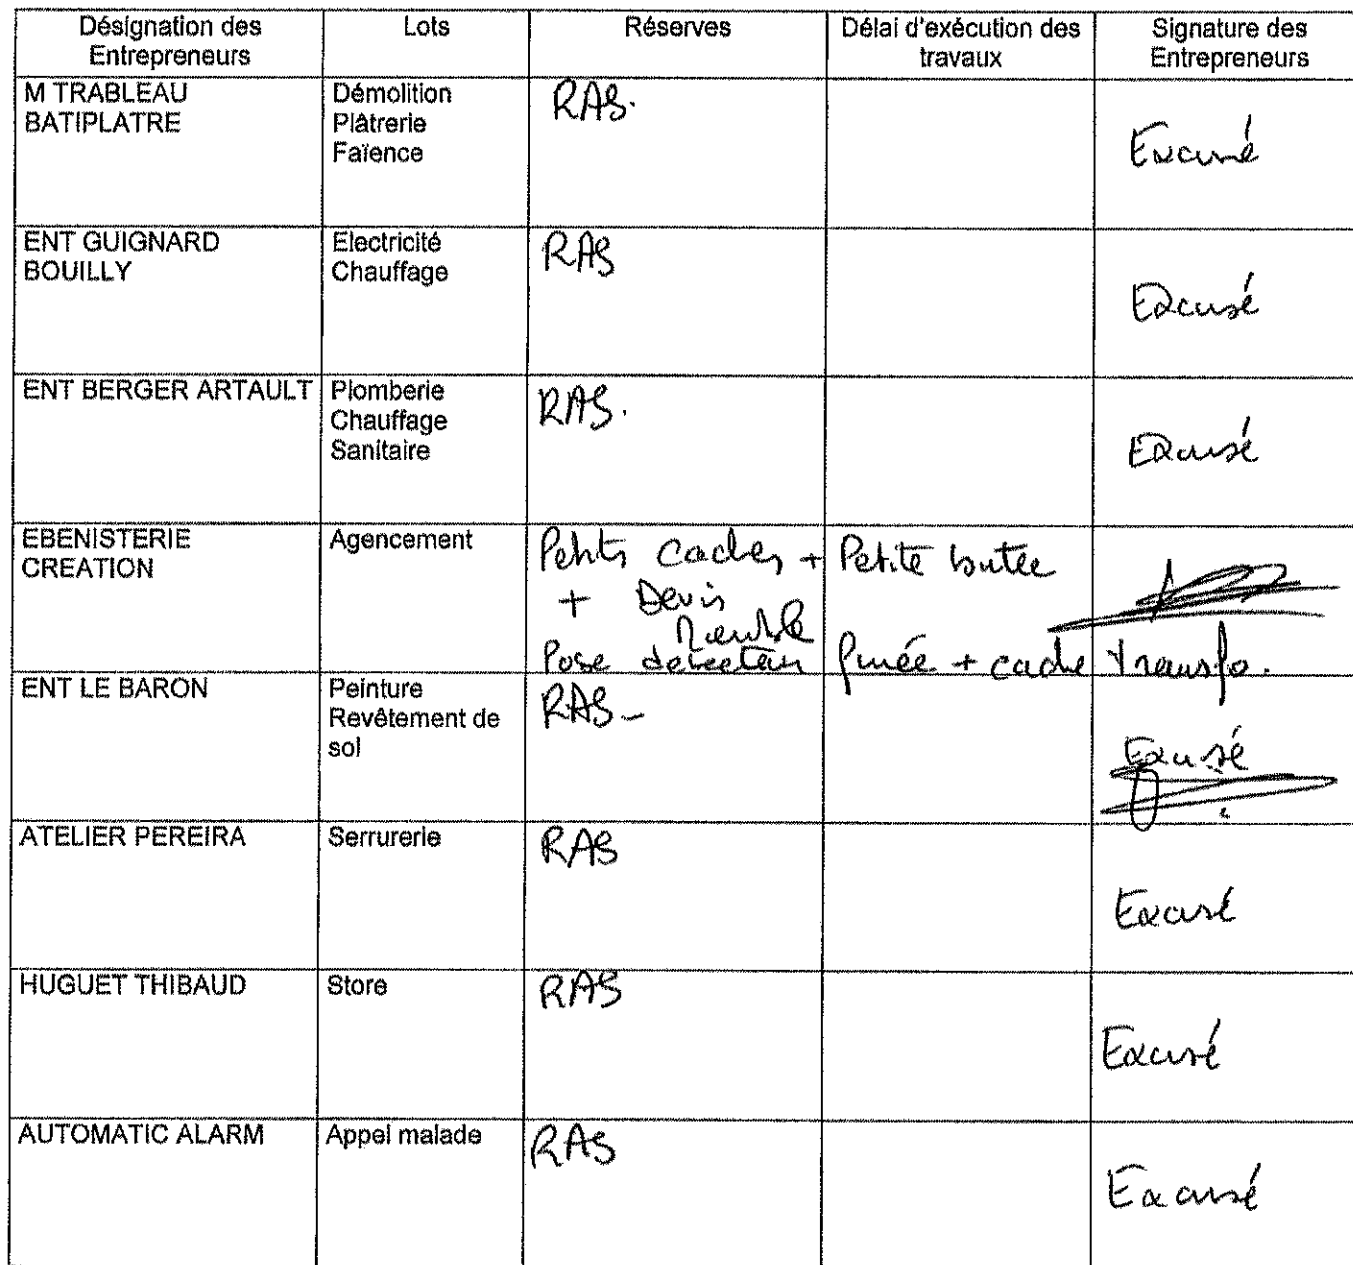 Désignation des Entrepreneurs Lots Réserves Délai d'exécution des travaux Signature des Entrepreneurs
M TRABLEAU Démolition RAS.
BATIPLATRE Plâtrerie
Faïence Excusé
ENT GUIGNARD Electricité RAS
BOUILLY Chauffage
Excusé
ENT BERGER ARTAULT Plomberie RAS.
Chauffage
Sanitaire Excusé
EBENISTERIE Agencement Petits caches + Petite butée
CREATION + Devis
Meuble
Pose detecteur fumée + cache transfo.
ENT LE BARON Peinture RAS -
Revêtement de
sol
Excusé
ATELIER PEREIRA Serrurerie RAS
Excusé
HUGUET THIBAUD Store RAS
Excusé
AUTOMATIC ALARM Appel malade RAS
Excusé